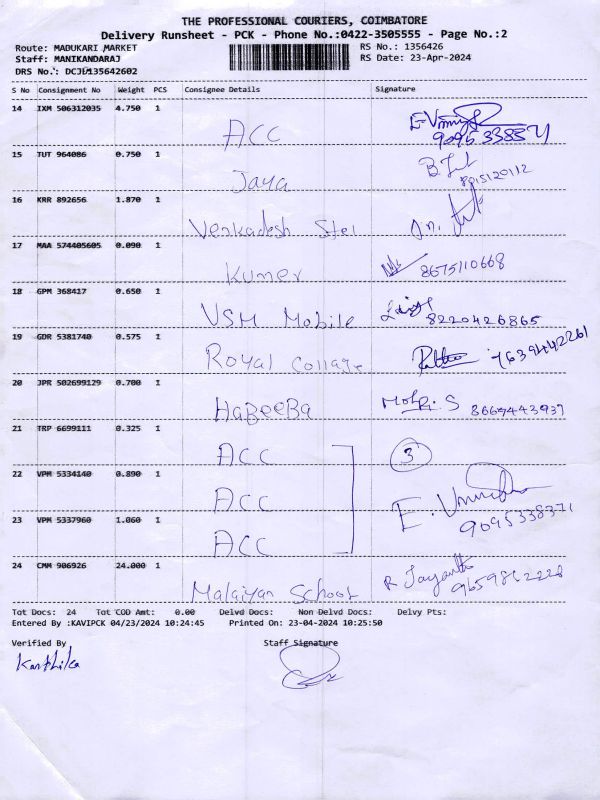 THE PROFESSIONAL COURIERS, COIMBATORE
Delivery Runsheet - PCK - Phone No.:0422-3505555 - Page No.:2
Route: MADUKARI MARKET
RS No.: 1356426
Staff: MANIKANDARAJ
RS Date: 23-Apr-2024
DRS No.: DCJL135642602
S No Consignment No Weight PCS Consignee Details Signature
14 IXM 506312035 4.750 1 ACC 9095338371
15 TUT 964086 0.750 1 Jaya 8015120112
16 KRR 892656 1.870 1 Venkadesh Stel
17 MAA 574405605 0.090 1 Kumer 8675110668
18 GPM 368417 0.650 1 VSM Mobile 8220426865
19 GDR 5381740 0.575 1 Royal Collage 7639442261
20 JPR 502699129 0.700 1 HaBeeBa 8669443937
21 TRP 6699111 0.325 1 ACC 3
22 VPM 5334140 0.890 1 ACC
23 VPM 5337960 1.060 1 ACC 9095338371
24 CMM 906926 24.000 1 Malaiyan School 9659862228
Tot Docs: 24 Tot COD Amt: 0.00 Delvd Docs: Non Delvd Docs: Delvy Pts:
Entered By :KAVIPCK 04/23/2024 10:24:45 Printed On: 23-04-2024 10:25:50
Verified By Staff Signature
Karthika